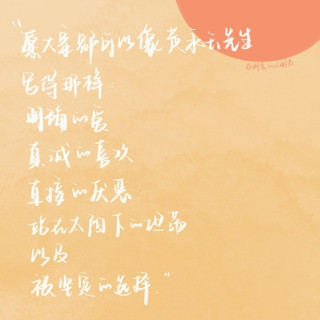 “愿大家都可以像黄永玉先生
写得那样:
明确的爱
真诚的喜欢
直接的厌恶
站在太阳下的坦荡
以及
被坚定的选择.”